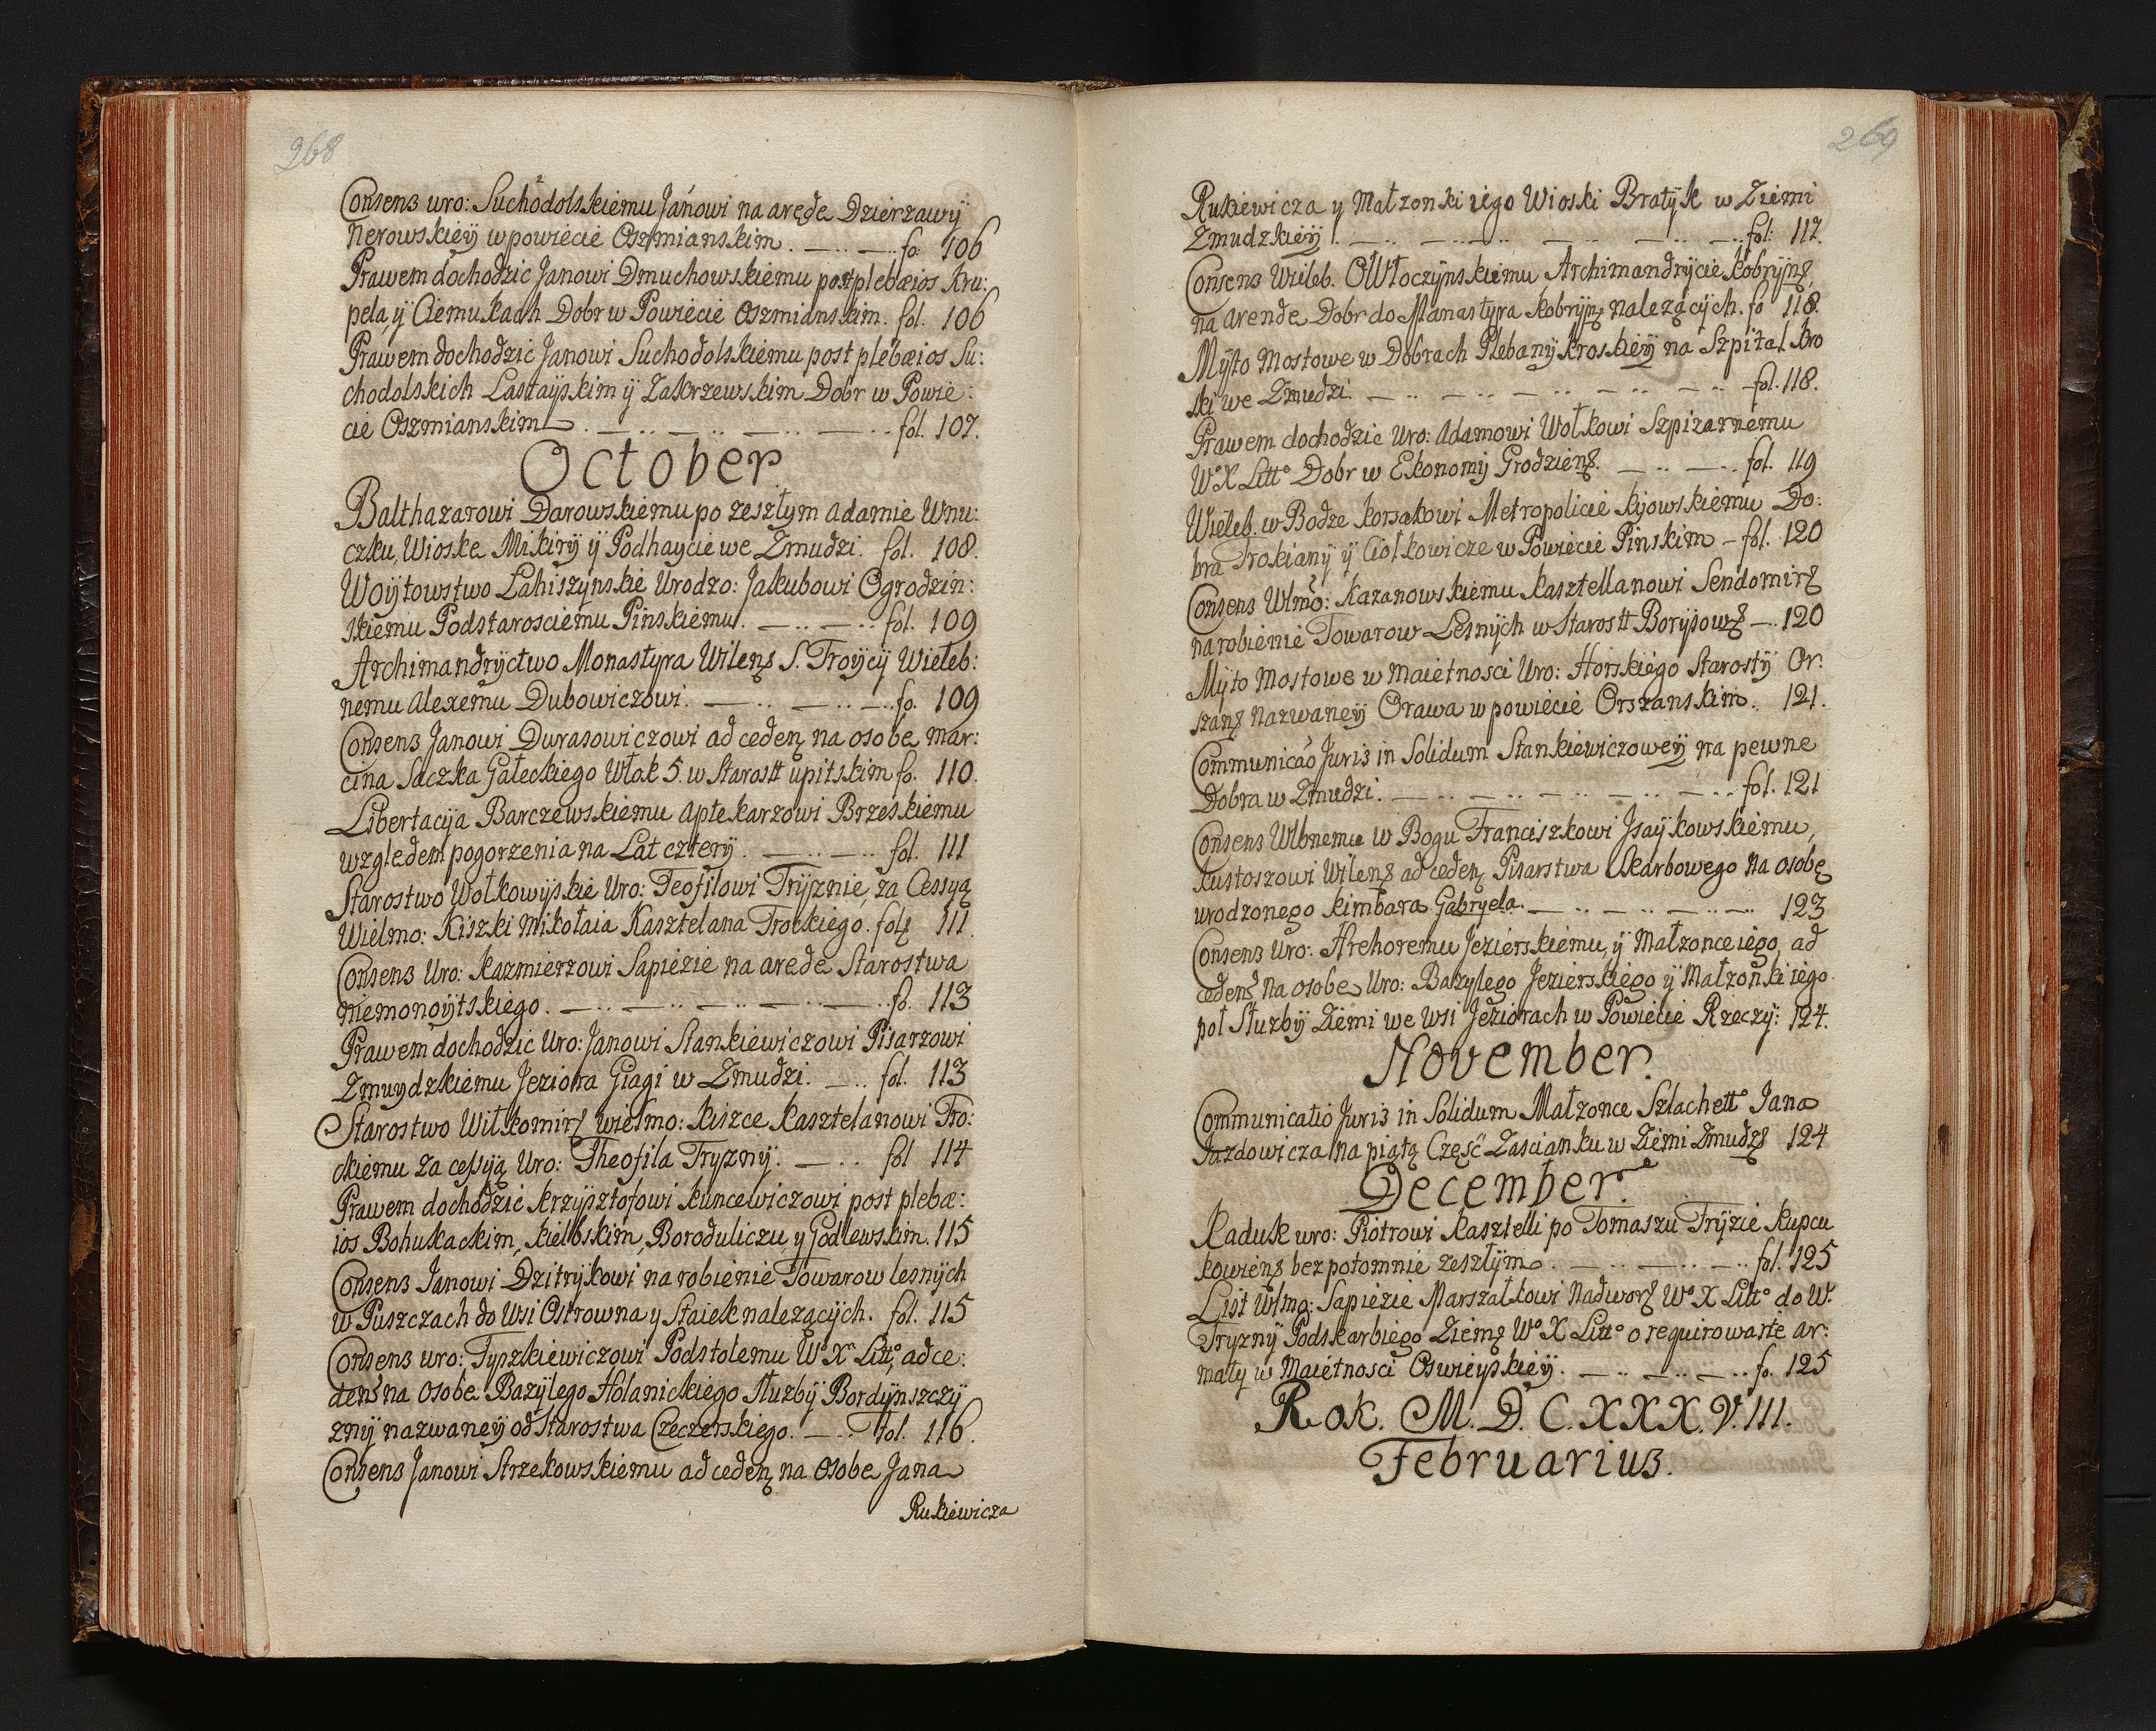 268
Consens uro: Suchodolskiemu Janowi na aręde Dzierzawÿ
Nerowskieÿ w powiecie Oszmianskim. fo: 106
Prawem dochodzic Janowi Dmuchowskiemu post plebæios Kru:
pela, ÿ Ciemukach Dobr w Powiecie Oszmianskim. fol. 106
Prawem dochodzic Janowi Suchodolskiemu post plebæios Su:
chodolskich Lastaÿskim ÿ Zakrzewskim Dobr w Powie:
cie Oszmianskim. fol. 107.
October.
Balthazarowi Darowskiemu po zeszłym Adamie Wnu:
czku, Wioske Mikirÿ ÿ Podhaycie we Zmudzi. fol. 108.
Woÿtowstwo Lahiszynskie Urodzo: Jakubowi Ogrodzin:
skiemu Podstarosciemu Pinskiemu. fol. 109
Archimandryctwo Monastyra Wilenȝ S. Troÿcÿ Wieleb:
nemu Alexemu Dubowiczowi. fo. 109
Consens Janowi Durasowiczowi ad cedenȝ na osobe Mar:
cina Saczka Gałeckiego Włok 5. w Starostt upitskim fo. 110.
Libertacija Barczewskiemu Aptekarzowi Brzeskiemu
względem pogorzenia na Lat czterÿ. fol. 111
Starostwo Wołkowÿskie Uro: Teofilowi Trÿznie, za Cessyą
Wielmo: Kiszki Mikołaia Kasztelana Trockiego. fol 111.
Consens Uro: Kazmierzowi Sapiezie na arede Starostwa
Niemonoÿtskiego. fo. 113
Prawem dochodzic Uro: Janowi Stankiewiczowi Pisarzowi
Zmuydzkiemu Jeziora Giagi w Zmudzi. fol. 113
Starostwo Wiłkomirȝ wielmo: Kiszce Kasztelanowi Tro:
ckiemu za cessyią Uro: Theofila Tryznÿ. fol 114
Prawem dochodzic Krzÿsztofowi Kuncewiczowi post plebæ:
ios Bohukackim, Kiełbskim, Boroduliczu, y Godlewskim. 115
Consens Janowi Dzitrykowi na robienie Towarow lesnÿch
w Puszczach do Wsi Ostrowna y Staiek nalezącÿch. fol. 115
Consens uro: Tyszkiewiczowi Podstolemu Wᵒ Xᵃ Littᵒ, ad ce:
denȝ na Osobe Bazÿlego Hołanickiego Służbÿ Bordÿnszczÿ
znÿ nazwaneÿ od Starostwa Czeczerskiego. fol. 116.
Consens Janowi Strzekowskiemu ad cedenȝ na Osobe Jana
Rukiewicza
269
Rukiewicza y Małzonki iego Wioski Bratÿk w Ziemi
Zmudzkieÿ. fol: 117.
Consens Wieleb. Owłoczÿnskiemu Archimandrÿcie Kobrÿnȝ,
na arende Dobr do Manastyra Kobrÿnȝ nalezącÿch. fo 118.
Mÿto Mostowe w Dobrach Plebanÿ Kroskieÿ na Szpital Kro
ski we Zmudzi. fol. 118.
Prawem dochodzic Uro: Adamowi Wołkowi Szpizarnemu
Wᵒ X Littᵒ Dobr w Ekonomÿ Grodzienȝ. fol. 119
Wieleb. w Bodze Korsakowi Metropolicie Kijowskiemu Do:
bra Trokianÿ ÿ Ciołkowicze w Powiecie Pinskim fol. 120
Consens Wlmo: Kazanowskiemu Kasztellanowi Sendomirȝ
na robienie Towarow Lesnÿch w Starostt Borÿsowȝ 120
Mÿto Mostowe w Maietnosci Uro: Horskiego Starostÿ Or:
szanȝ nazwaneÿ Orawa w powiecie Orszanskim. 121.
Communicao Juris in Solidum Stankiewiczoweÿ na pewne
Dobra w Zmudzi. fol. 121
Consens Wlbnemu w Bogu Franciszkowi Jsaÿkowskiemu,
Kustoszowi Wilenȝ ad cedenȝ Pisarstwa Skarbowego na osobę
urodzonego Kimbara Gabryela. 123
Consens Uro: Hrehoremu Jezierskiemu, ÿ Małzonce iego, ad
cedenȝ na osobe Uro: Bazylego Jezierskiego ÿ Małzonki iego
poł Służbÿ Ziemi we Wsi Jeziorach w Powiecie Rzeczÿ: 124.
November.
Communicatio Juris in Solidum Małzonce Szlachettᵒ Jana
Jazdowicza na piątą Część Zascianku w Ziemi Zmudzȝ 124
December.
Kaduk uro: Piotrowi Kasztelli po Tomaszu Frÿzie Kupcu
Kowienȝ bezpotomnie zeszłÿm. fol. 125
List Wlmo: Sapiezie Marszałkowi Nadworȝ Wᵒ X Littᵒ do W.
Tryznÿ Podskarbiego Ziemȝ Wᵒ X Littᵒ o requirowanie ar:
matÿ w Maietnosci Oswieyskieÿ. fo. 125
Rok. M. D. C. XXX. V. III.
Februarius.